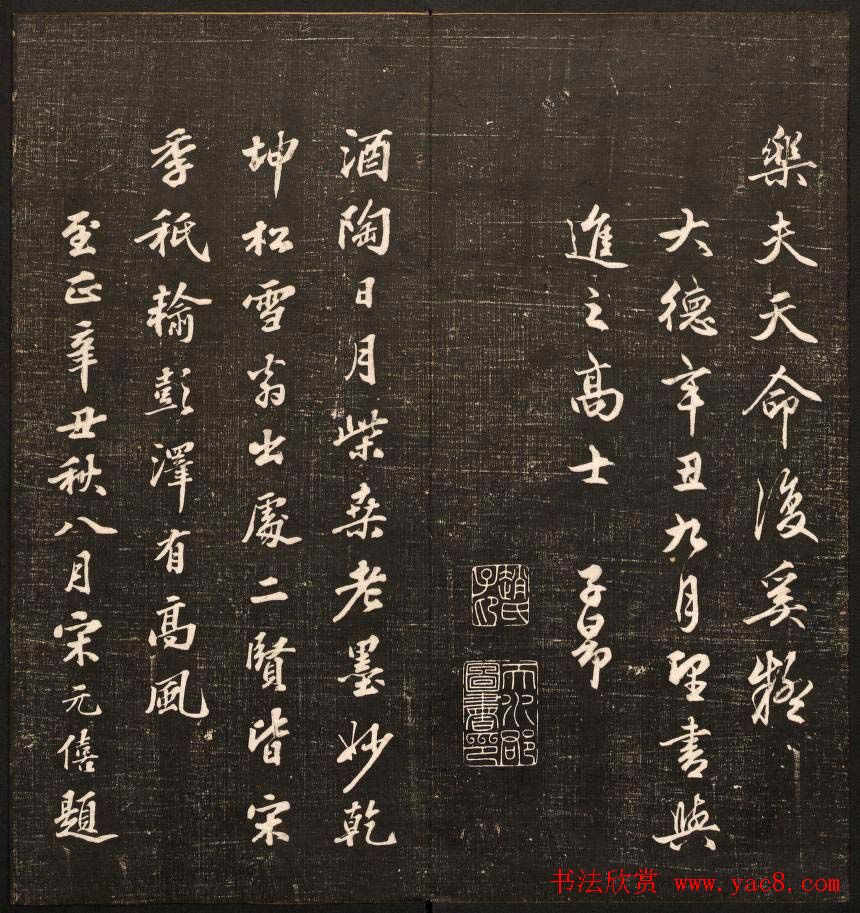 樂夫天命復奚疑
大德辛丑九月望書與
進之高士 子昂
趙氏子昂
天水郡圖書印
酒陶日月柴桑老墨妙乾
坤松雪翁出處二賢皆宋
季秖輸彭澤有高風
至正辛丑秋八月宋元僖題
书法欣赏 www.yac8.com